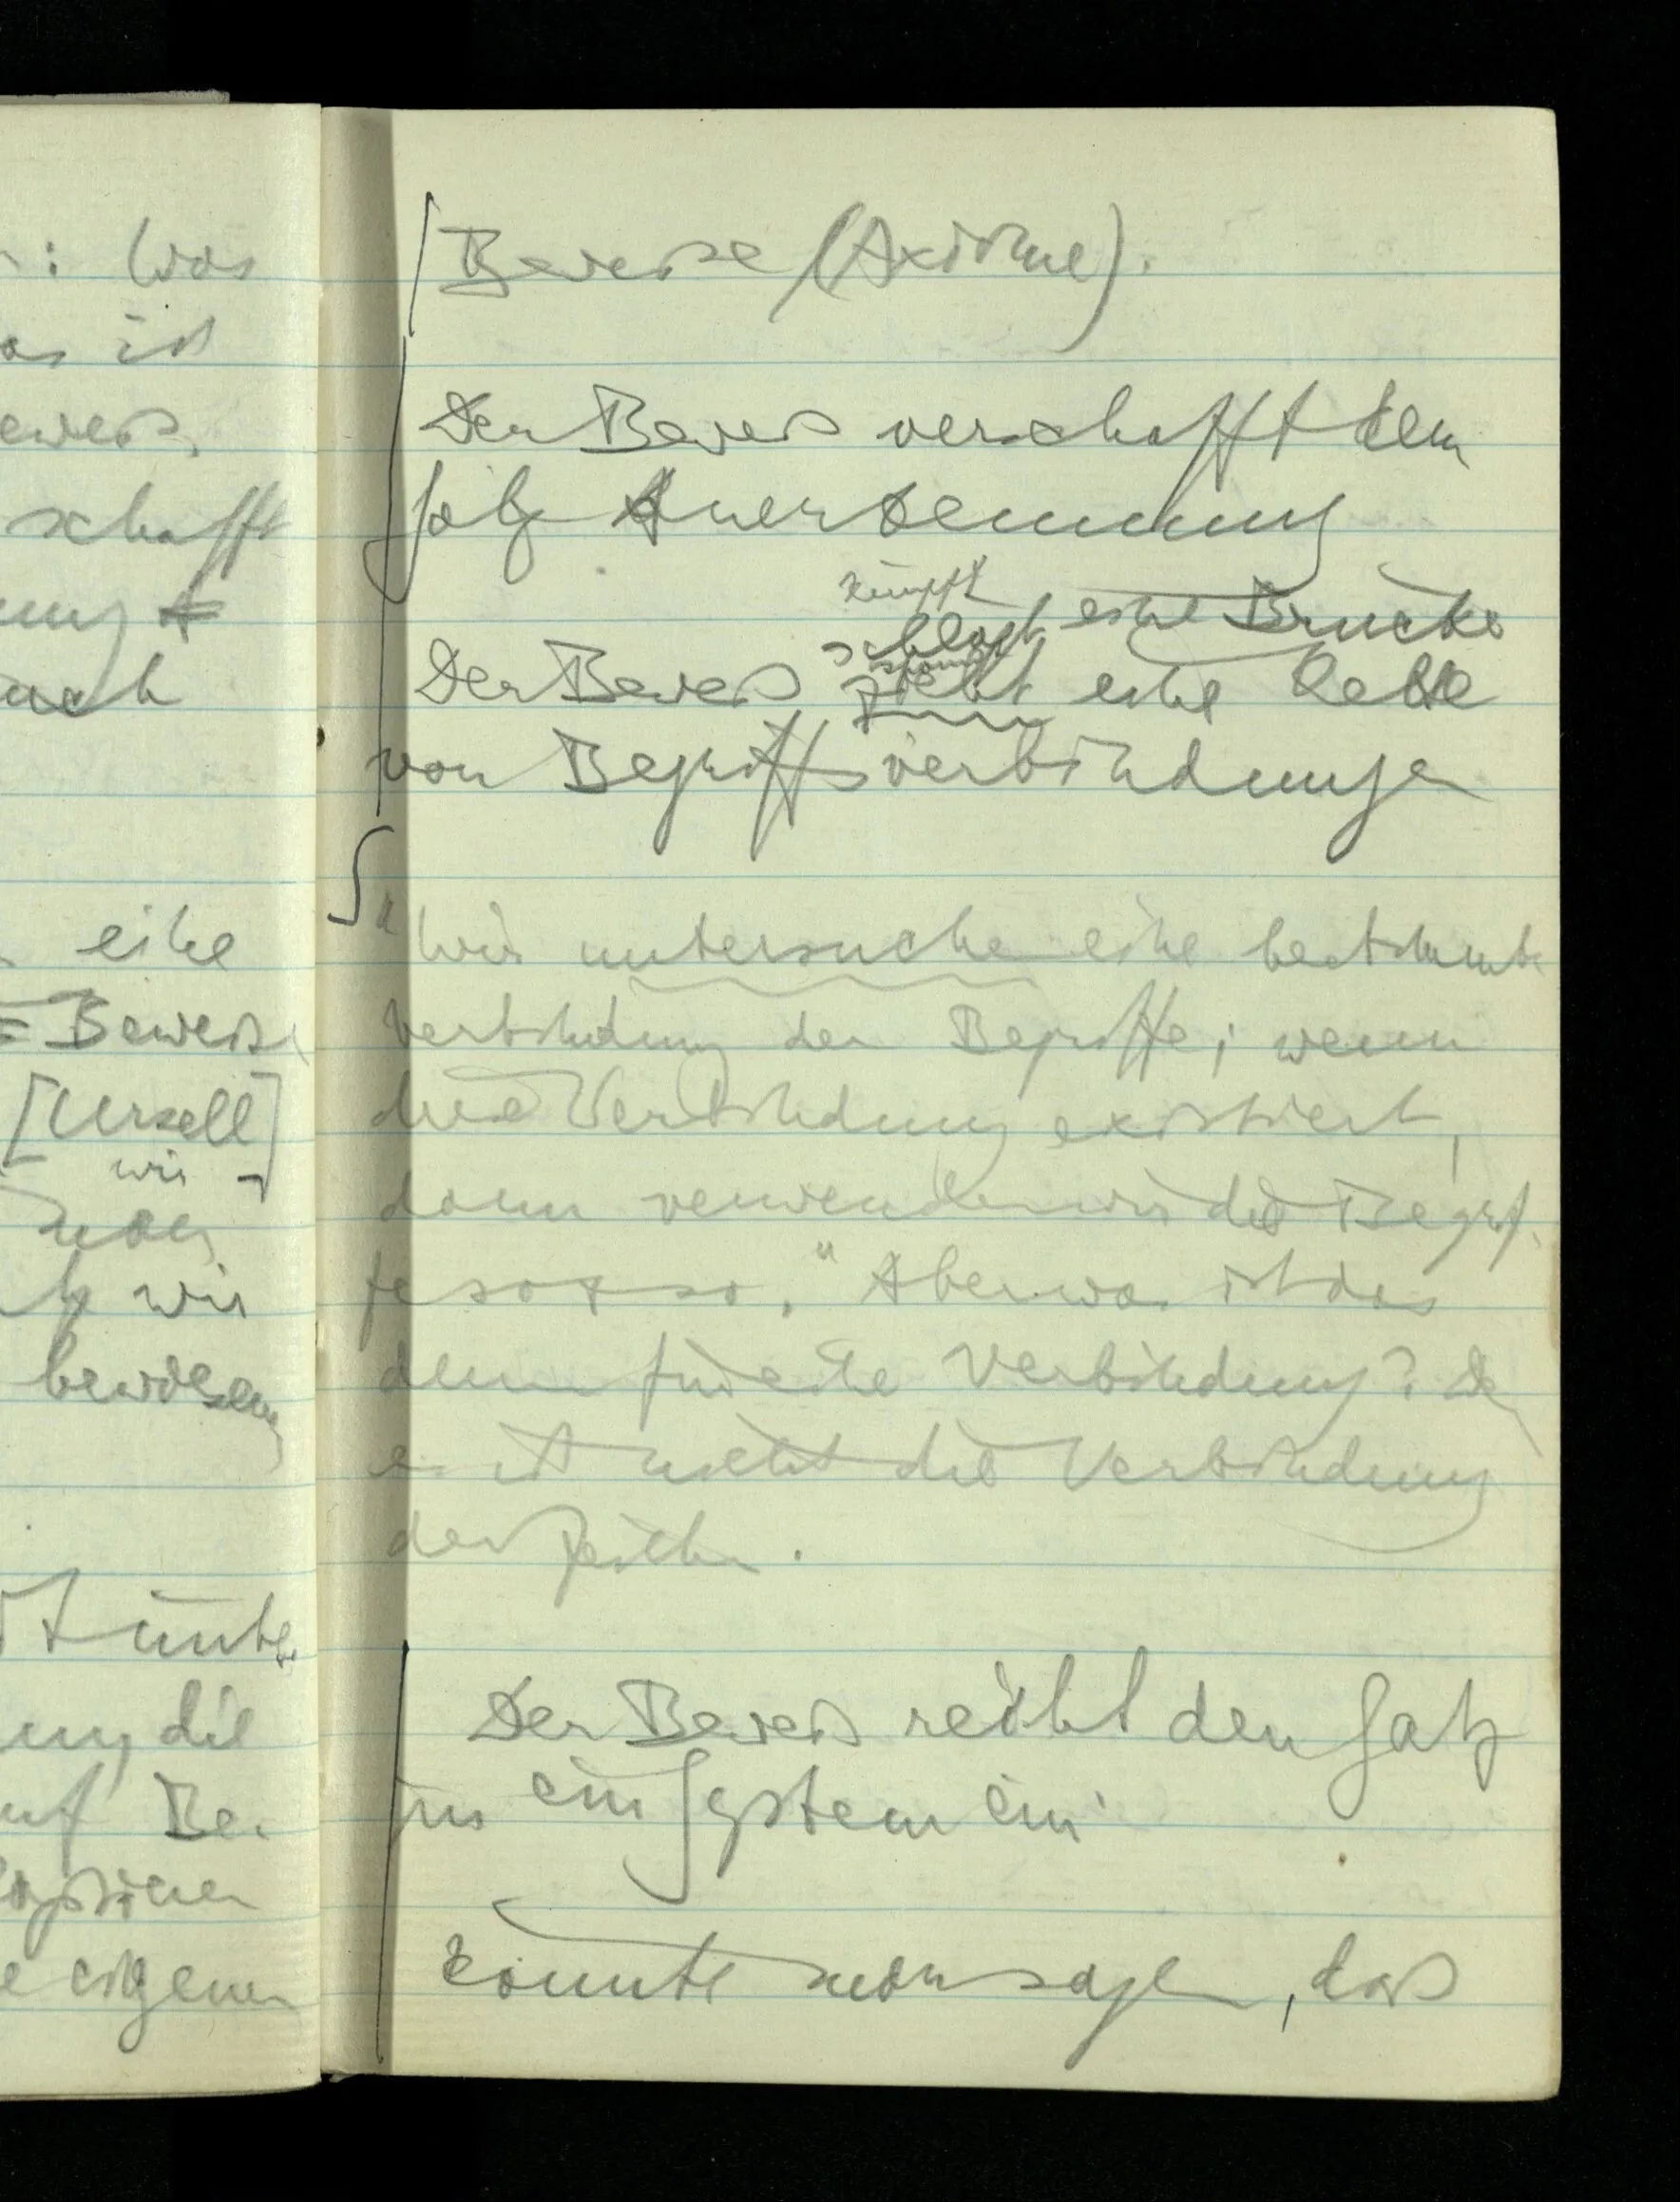 : Was
as ist
eweis,
schafft
ung
uch
eine
= Beweis
[Ursell]
wir
man
tz wir
bewiesen
ung die
uf Be-
e eigenen
Beweise (Axiome).
Der Beweis verschafft dem
Satz Anerkennung
knüpft
schlägt eine Brücke
spannt
Der Beweis zieht eine Kette
von Begriffsverbindungen
"Wir untersuchen eine bestimmte
Verbindung der Begriffe; wenn
diese Verbindung existiert,
dann verwenden wir die Begrif-
fe so & so." Aber was ist das
denn für eine Verbindung? Denn
es ist nicht die Verbindung
der Zeichen.
Der Beweis reiht den Satz
in ein System ein
Könnte man sagen, daß